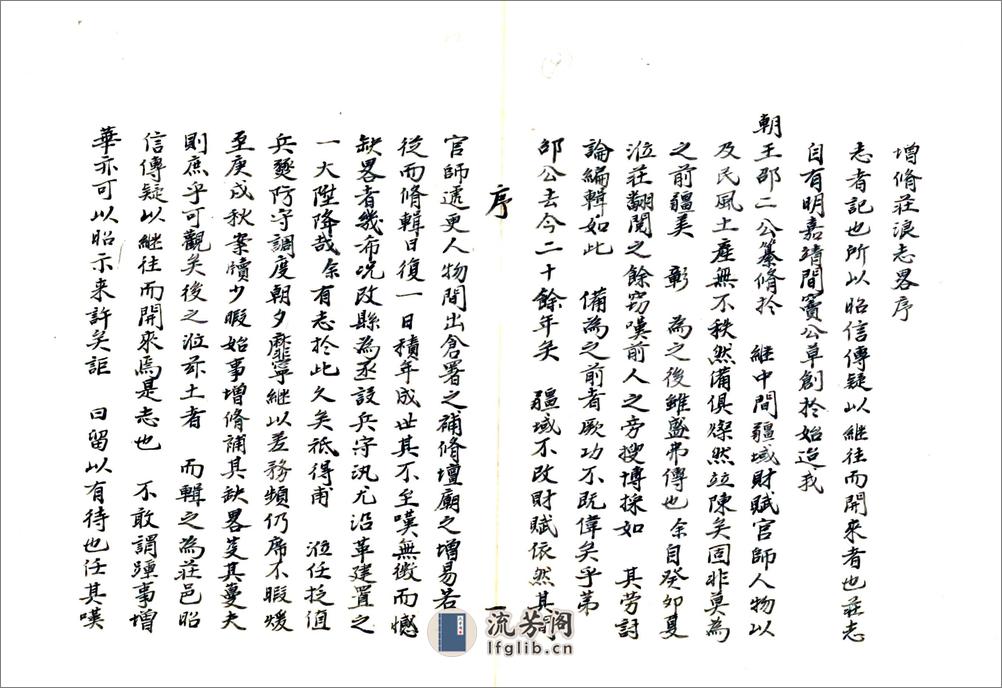 增脩莊浪志畧序
志者記也所以昭信傳疑以継往而開來者也莊志
自有明嘉靖間竇公草創扵始迨我
朝王邵二公纂脩扵 継中間疆域財賦官師人物以
及民風土産無不秩然備俱燦然竝陳矣固非莫為
之前疆美 彰 為之後雖盛弗傳也余自癸卯夏
涖莊翻閱之餘竊嘆前人之旁搜博採如 其勞討
論編輯如此 備為之前者厥功不既偉矣乎第
邵公去今二十餘年矣 疆域不改財賦依然其
序
一
官師遞更人物間出倉署之補脩壇廟之增易若
從而脩輯日復一日積年成世其不至嘆無徴而憾
缺畧者幾布况改縣為丞設兵守汛尤沿革建置之
一大陞降哉余有志扵此久矣祗得甫 涖任挍值
兵燹防守調度朝夕靡寧継以差務頻仍席不暇煖
至庚戌秋案牘少暇始事增脩誧其缺畧芟其蔓夫
則庶乎可觀矣後之涖茲土者 而輯之為莊邑昭
信傳疑以継往而開來焉是志也 不敢謂踵事增
華亦可以昭示来許矣詎 曰留以有待也任其嘆
流芳阁
lfglib.cn